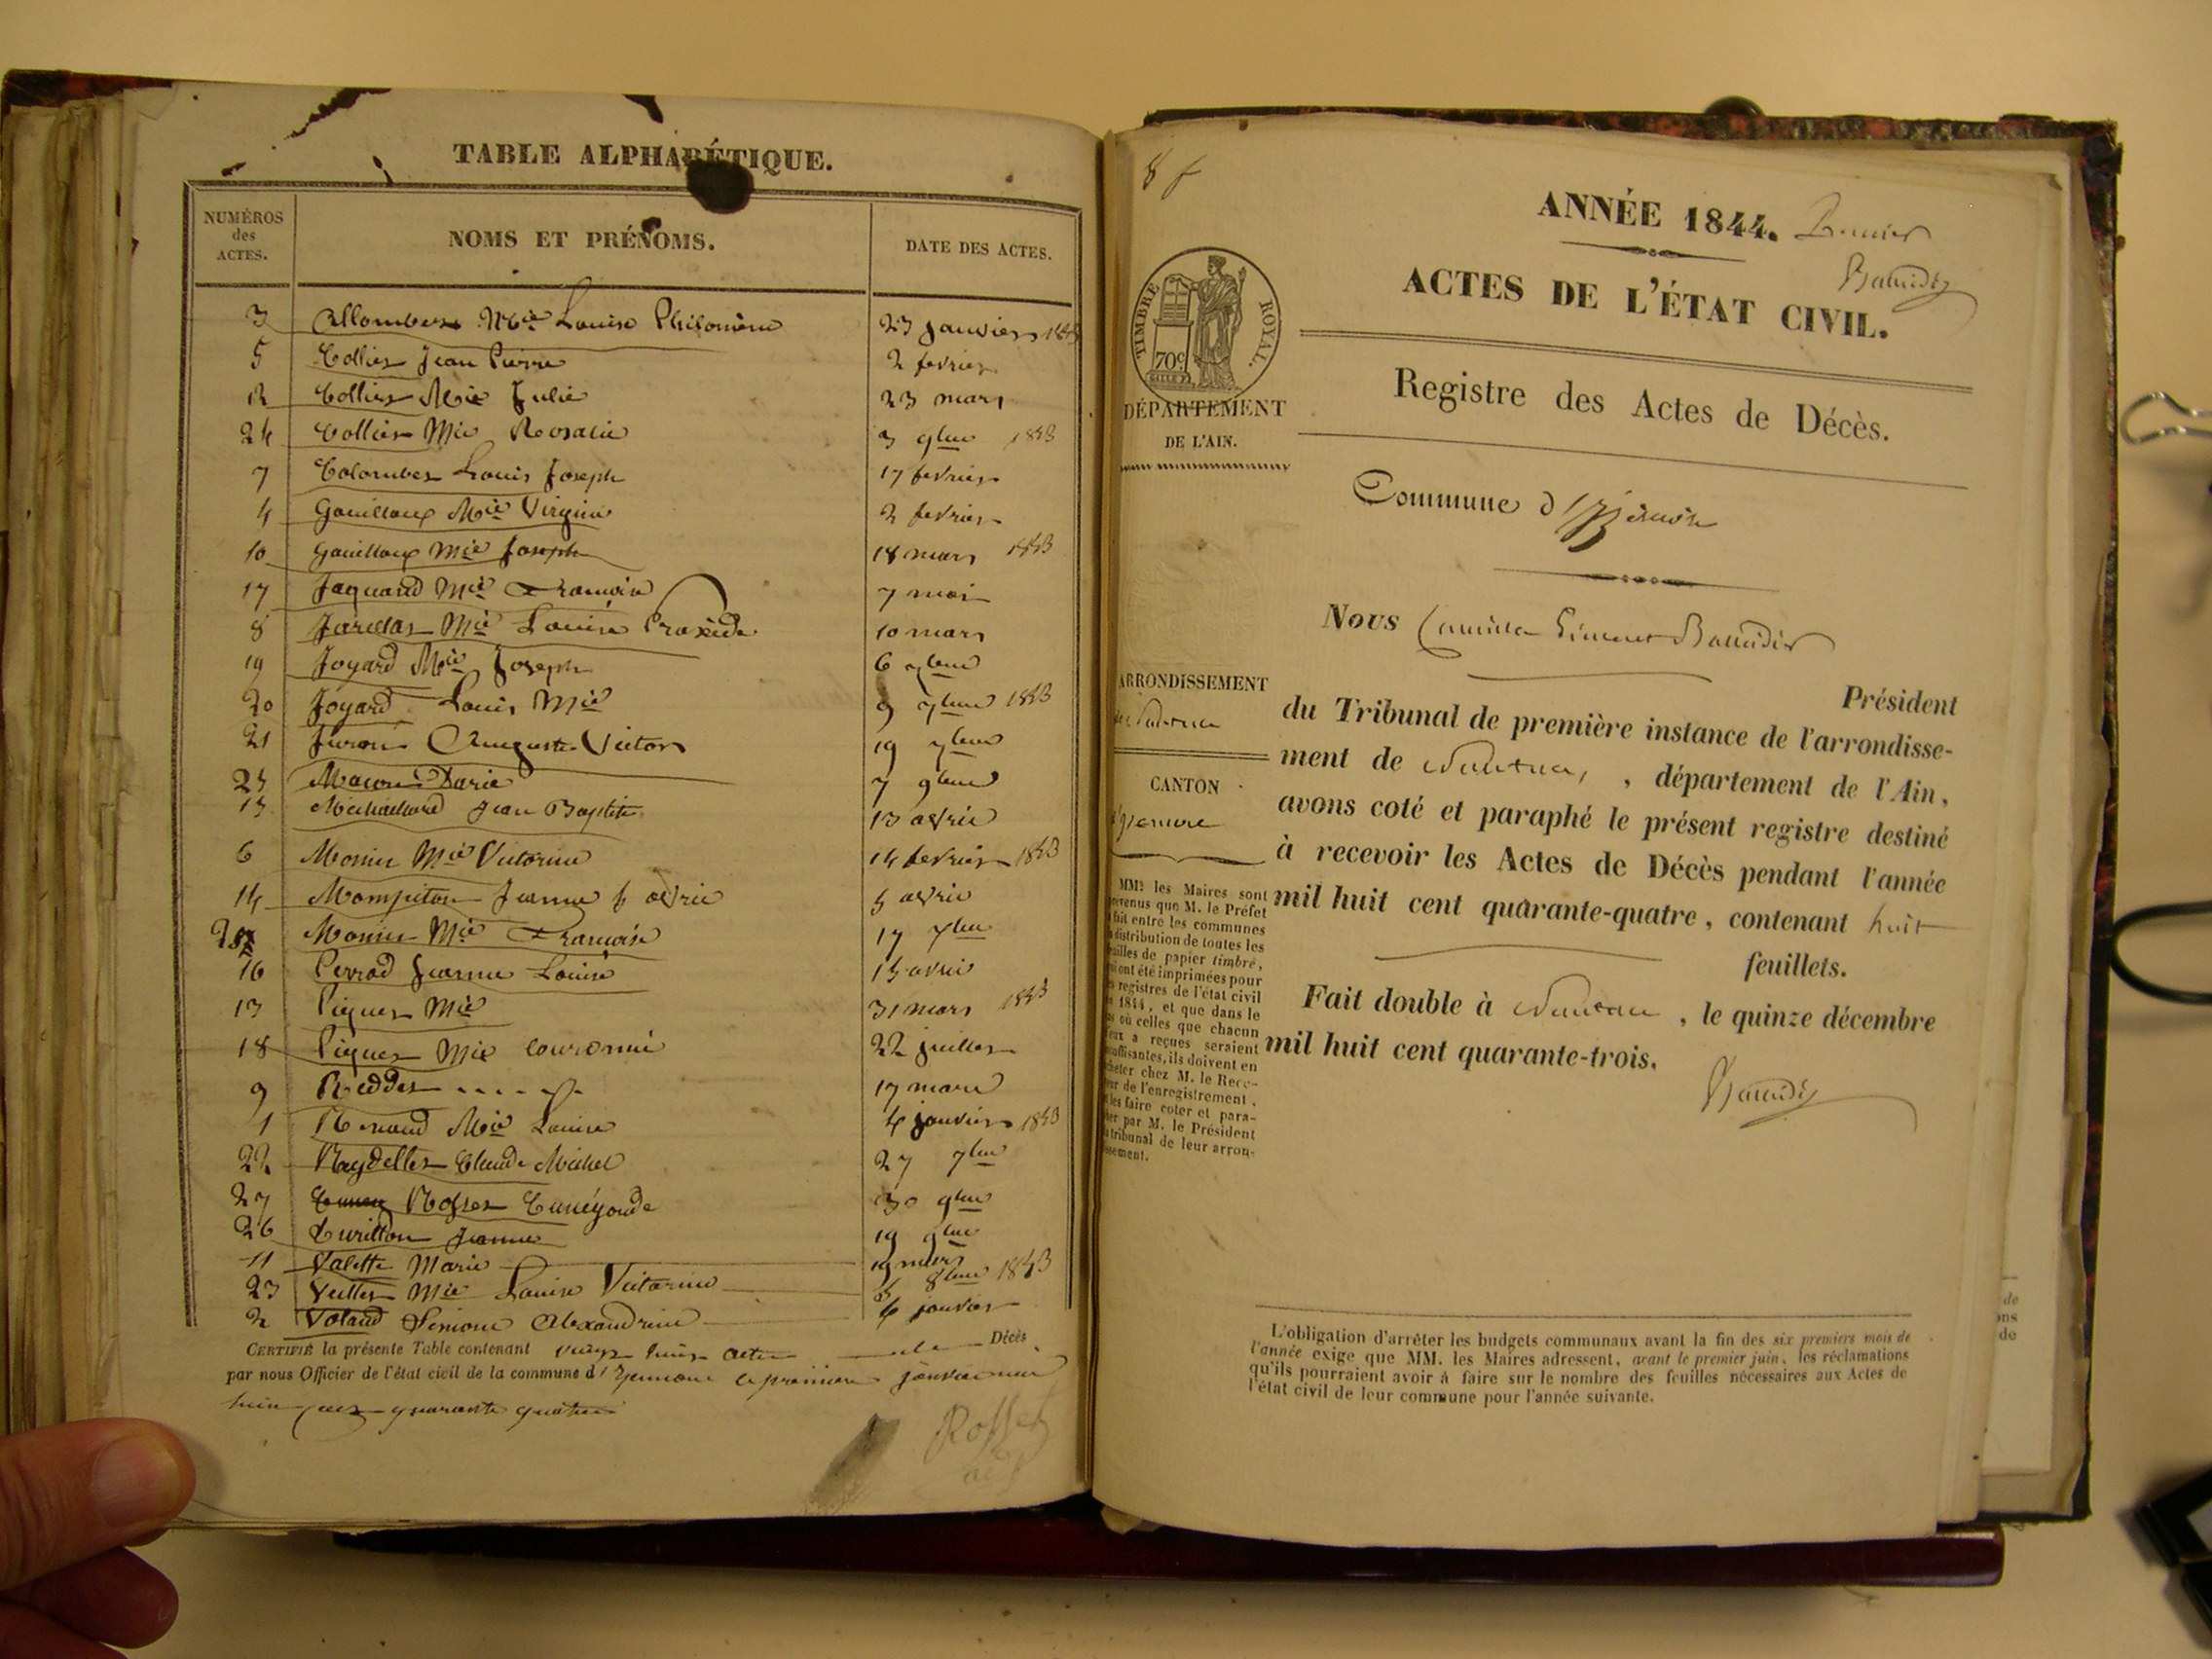 TABLE ALPHABÉTIQUE.
NUMÉROS des ACTES.
NOMS ET PRÉNOMS.
DATE DES ACTES.
3 Allombert Mie Louise Philomène 23 janvier 1843
5 Collier Jean Pierre 2 fevrier
12 Collier Mie Julie 23 mars
24 Collier Mie Rosalie 3 9bre 1843
7 Colomber Louis Joseph 17 fevrier
4 Gouilloux Mie Virginie 2 fevrier
10 Gouilloux Mie Joseph 18 mars 1843
17 Jaquand Mie Francoise 7 mai
8 Mie Louise Praxède 10 mars
19 Joyard Mie Joseph 6 7bre
20 Joyard Louis Mie 9 7bre 1843
21 Auguste Victor 19 7bre
25 Marie 7 9bre
15 Jean Baptiste 13 avril
6 Monier Mie Victorine 14 fevrier 1843
14 Jeanne 5 avril
Monier Mie Francoise 17 7bre
16 Perrod Jeanne Louise 15 avril
13 Piquet Mie 31 mars 1843
18 Piquet Mie 22 juillet
9 Reddet 17 mars
1 Renaud Mie Louise 4 janvier 1843
22 Reydellet Claude Michel 27 7bre
27 Rosset Cunégonde 30 9bre
26 Curitton Jeanne 19 9bre
11 Valette Marie 19 mars
23 Vuillet Mie Louise Victorine 8bre 1843
2 Volaud Simone Alexandrine 4 janvier
CERTIFIÉ la présente Table contenant vingt huit actes de Décès
par nous Officier de l'état civil de la commune d'Izernore le premier janvier mil
huit cent quarante quatre
Rosset
8 f
ANNÉE 1844. Premier
Baudin
ACTES DE L'ÉTAT CIVIL.
TIMBRE ROYAL.
70c
DÉPARTEMENT
DE L'AIN.
Registre des Actes de Décès.
Commune d'Izernore
Nous Camille
ARRONDISSEMENT
de Nantua
CANTON
d'Izernore
Président
du Tribunal de première instance de l'arrondisse-
ment de Nantua, , département de l'Ain,
avons coté et paraphé le présent registre destiné
à recevoir les Actes de Décès pendant l'année
mil huit cent quarante-quatre, contenant huit
feuillets.
Fait double à Nantua, le quinze décembre
mil huit cent quarante-trois.
MM. les Maires sont
prévenus que M. le Préfet
fait entre les communes
distribution de toutes les
feuilles de papier timbré,
ont été imprimées pour
registres de l'état civil
1844, et que dans le
où celles que chacun
a reçues seraient
insuffisantes, ils doivent en
acheter chez M. le Rece-
veur de l'enregistrement,
les faire coter et para-
pher par M. le Président
tribunal de leur arron-
dissement.
L'obligation d'arrêter les budgets communaux avant la fin des six premiers mois de
l'année exige que MM. les Maires adressent, avant le premier juin, les réclamations
qu'ils pourraient avoir à faire sur le nombre des feuilles nécessaires aux Actes de
l'état civil de leur commune pour l'année suivante.